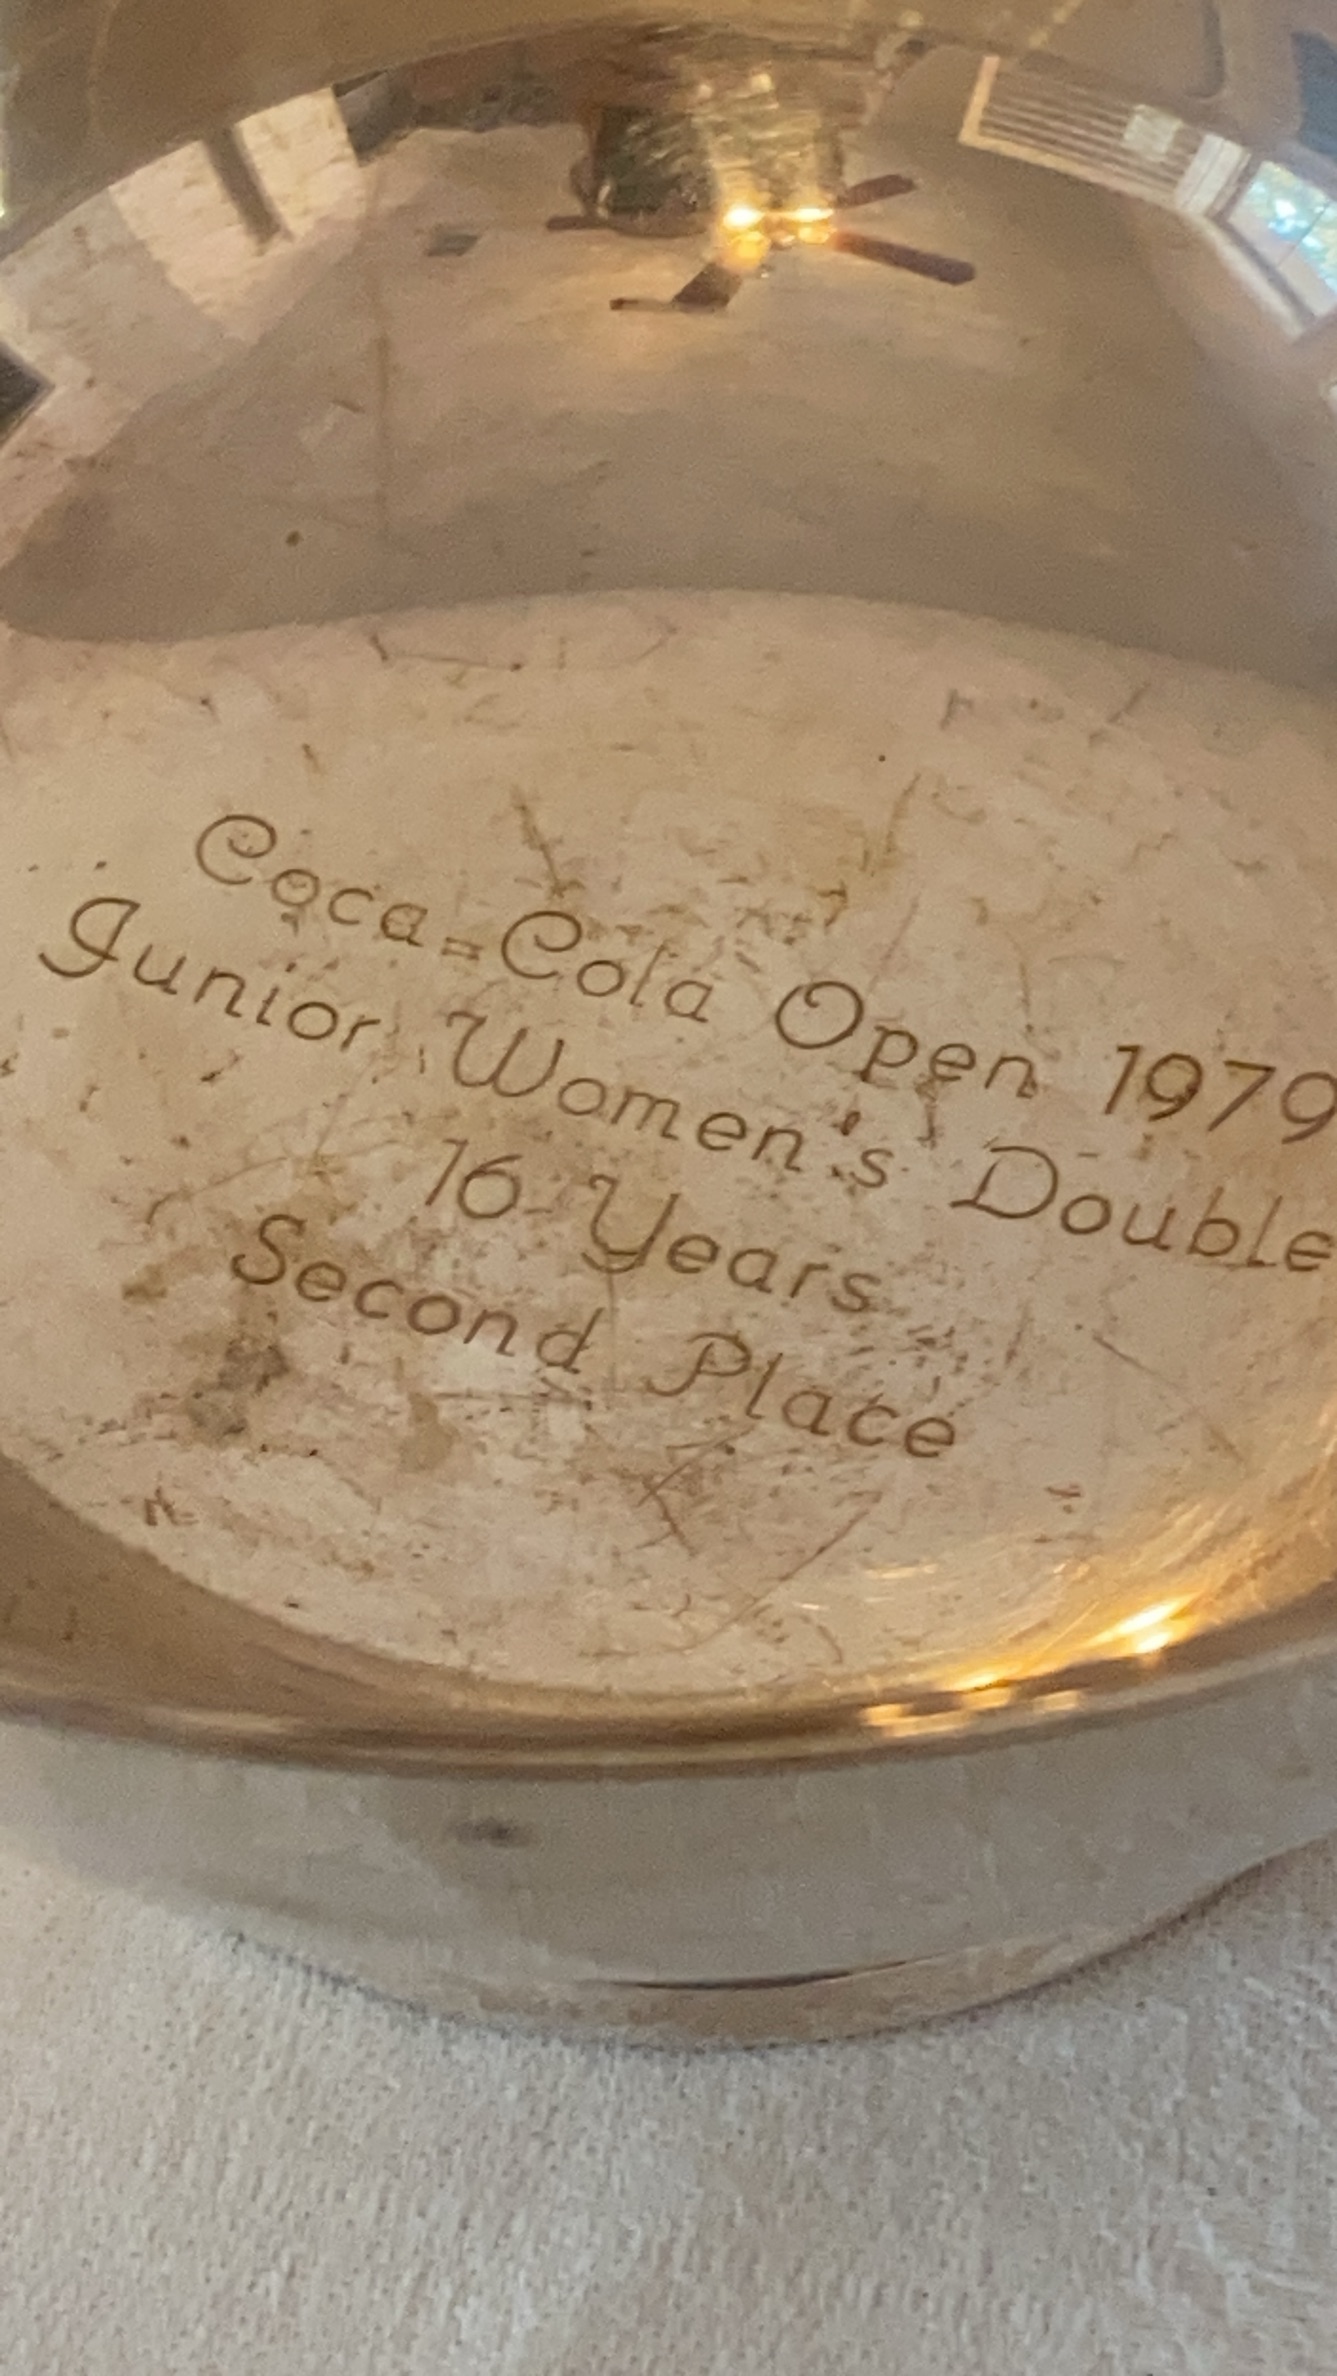 Coca-Cola Open 1979
Junior Women's Double
16 Years
Second Place